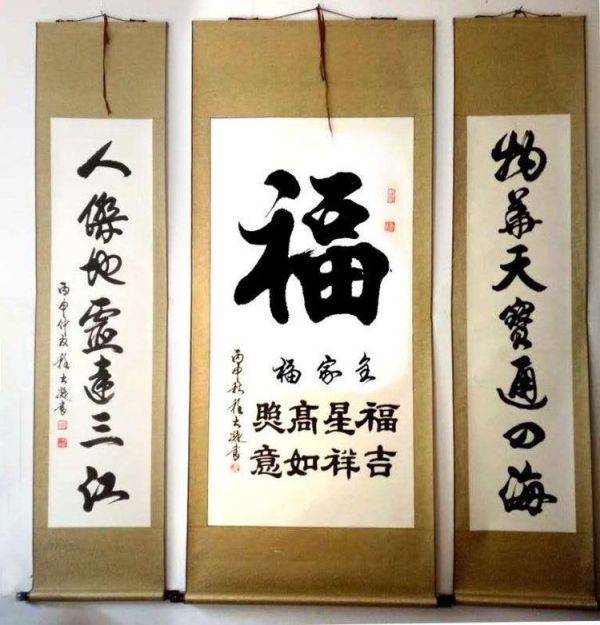 物華天寶通四海
福
全家福
福星高照
吉祥如意
丙申秋程大書
人傑地靈達三江
丙申仲秋程大書